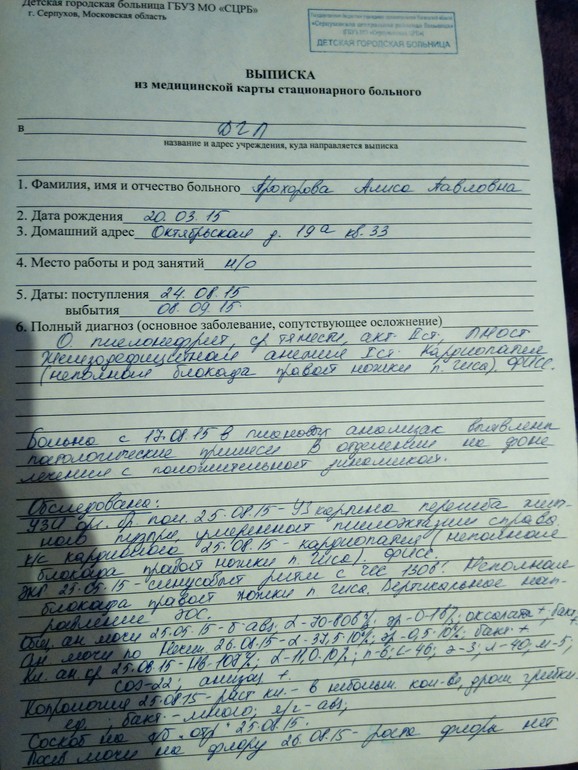 Детская городская больница ГБУЗ МО «СЦРБ»
г. Серпухов, Московская область
ДЕТСКАЯ ГОРОДСКАЯ БОЛЬНИЦА
ВЫПИСКА
из медицинской карты стационарного больного
в ДГП
название и адрес учреждения, куда направляется выписка
1. Фамилия, имя и отчество больного Прохорова Алиса Павловна
2. Дата рождения 20.03.15
3. Домашний адрес Октябрьская д. 19а кв. 33
4. Место работы и род занятий н/о
5. Даты: поступления 24.08.15
выбытия 08.09.15
6. Полный диагноз (основное заболевание, сопутствующее осложнение)
О. пиелонефрит, ср. тяжести, акт. II ст.,
Железодефицитная анемия I ст. Кардиопатия
(неполная блокада правой ножки п. Гиса). ФКСС.
Больна с 17.08.15 в плановых анализах выявлены
патологические примеси. В отделении на фоне
лечения с положительной динамикой.
Обследована:
УЗИ бр. пол. 25.08.15 - УЗ картина перегиба желч-
ного пузыря, умеренной пиелоэктазии справа
к/с кардиолога 25.08.15 - кардиопатия (неполная
блокада правой ножки п. Гиса). ФКСС.
ЭКГ 25.05.15 - синусовый ритм с ЧСС 130б'. Неполная
блокада правой ножки п. Гиса. Вертикальное нап-
равление ЭОС.
Общ. ан. мочи 25.05.15 - б-авз, L-70-80 оксалаты +, бакт +
Ан. мочи по Нечип. 26.08.15 - L-37,5·10 эр-0,5·10 бакт +
Кл. ан. кр 25.08.15 - Нв-108 L-11,0·10 п-6; с-46; э-3; л-40; м-5;
СОЭ-22; анизоц +
Копрология 25.08.15 - раст. кл. - в небольш. кол-ве, дрож. грибки
ед; бакт. - много; я/г - авз;
Соскоб на я/г отр. 25.08.15.
Посев мочи на флору 26.08.15 - роста флоры нет